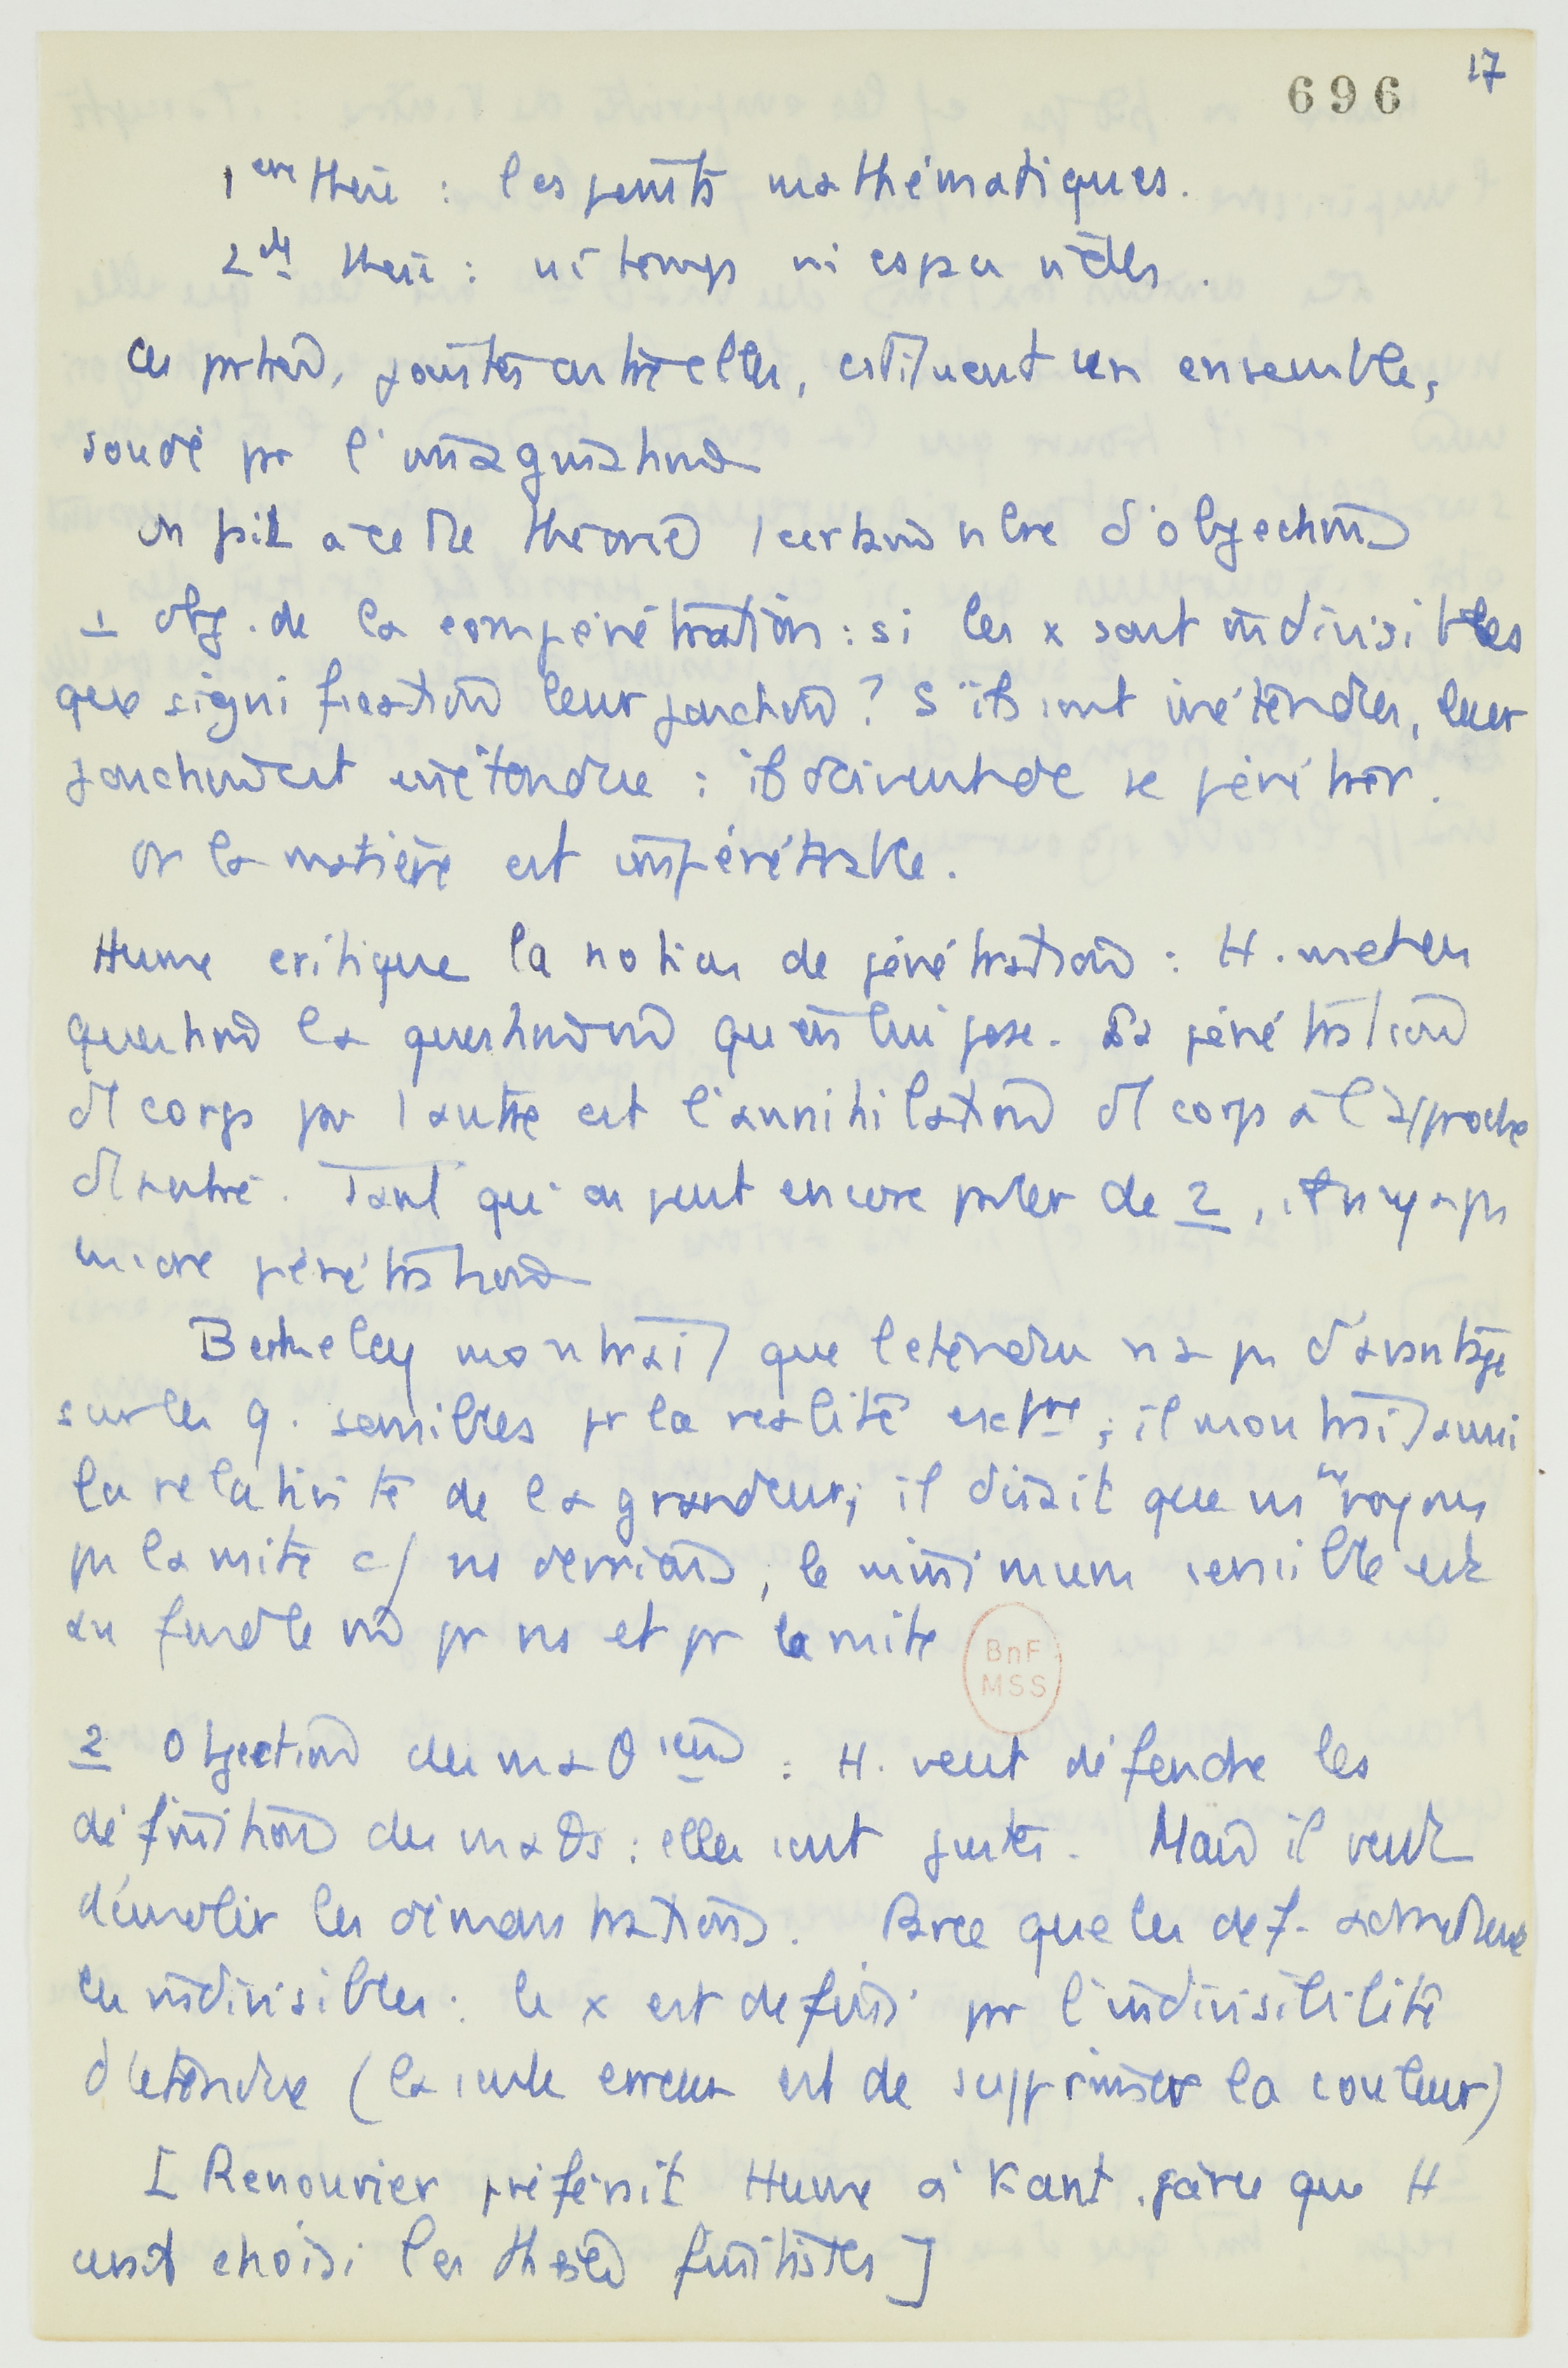 17
696
1ere thèse : les points mathématiques.
2de thèse : ni temps ni espace réels.
ces parties, jointes entre elles, constituent un ensemble,
soudé par l'imagination
on fait à cette théorie 1 certain nbre d'objections
1 obj. de la compénétration : si les x sont indivisibles
que signifie leur jonction ? S'ils sont inétendus, leur
jonction est inétendue : ils doivent de se pénétrer.
or la matière est impénétrable.
Hume critique la notion de pénétration : H. met en
question la question qu'on lui pose. La pénétration
d'1 corps par l'autre est l'annihilation d'1 corps à l'approche
d'1 autre. Tant qu'on peut encore parler de 2, il n'y a pas
encore pénétration
Berkeley montrait que l'étendue n'a pas d'avantage
sur les q. sensibles pr la réalité extre ; il montrait aussi
la relativité de la grandeur ; il disait que ns ne voyons
pas la mite c/ ns devrions ; le minimum sensible est
au fond le m pr ns et pr la mite
BnF
MSS
2 Objection des maθiens : H. veut défendre les
définitions des maθs : elles sont justes. Mais il veut
démolir les démonstrations. Parce que les def. admettent
les indivisibles : le x est défini par l'indivisibilité
d'étendue (la seule erreur est de supprimer la couleur)
[Renouvier préférait Hume à Kant, parce que H
avait choisi les thèses finitistes]